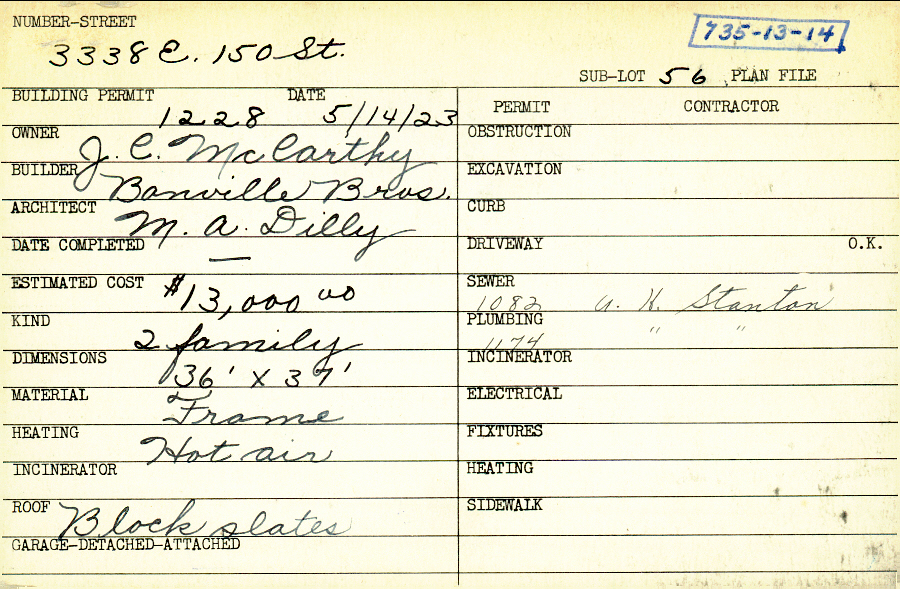 NUMBER-STREET
3338 E. 150 St.
735-13-14
SUB-LOT 56 PLAN FILE
BUILDING PERMIT DATE
1228 5/14/23
OWNER J. C. McCarthy
BUILDER Banville Bros.
ARCHITECT M. A. Dilly
DATE COMPLETED —
ESTIMATED COST $13,000 00
KIND 2 family
DIMENSIONS 36' X 37'
MATERIAL Frame
HEATING Hot air
INCINERATOR
ROOF Block slates
GARAGE-DETACHED-ATTACHED
PERMIT CONTRACTOR
OBSTRUCTION
EXCAVATION
CURB
DRIVEWAY O.K.
SEWER
1082 a. K. Stanton
PLUMBING
1174 " "
INCINERATOR
ELECTRICAL
FIXTURES
HEATING
SIDEWALK